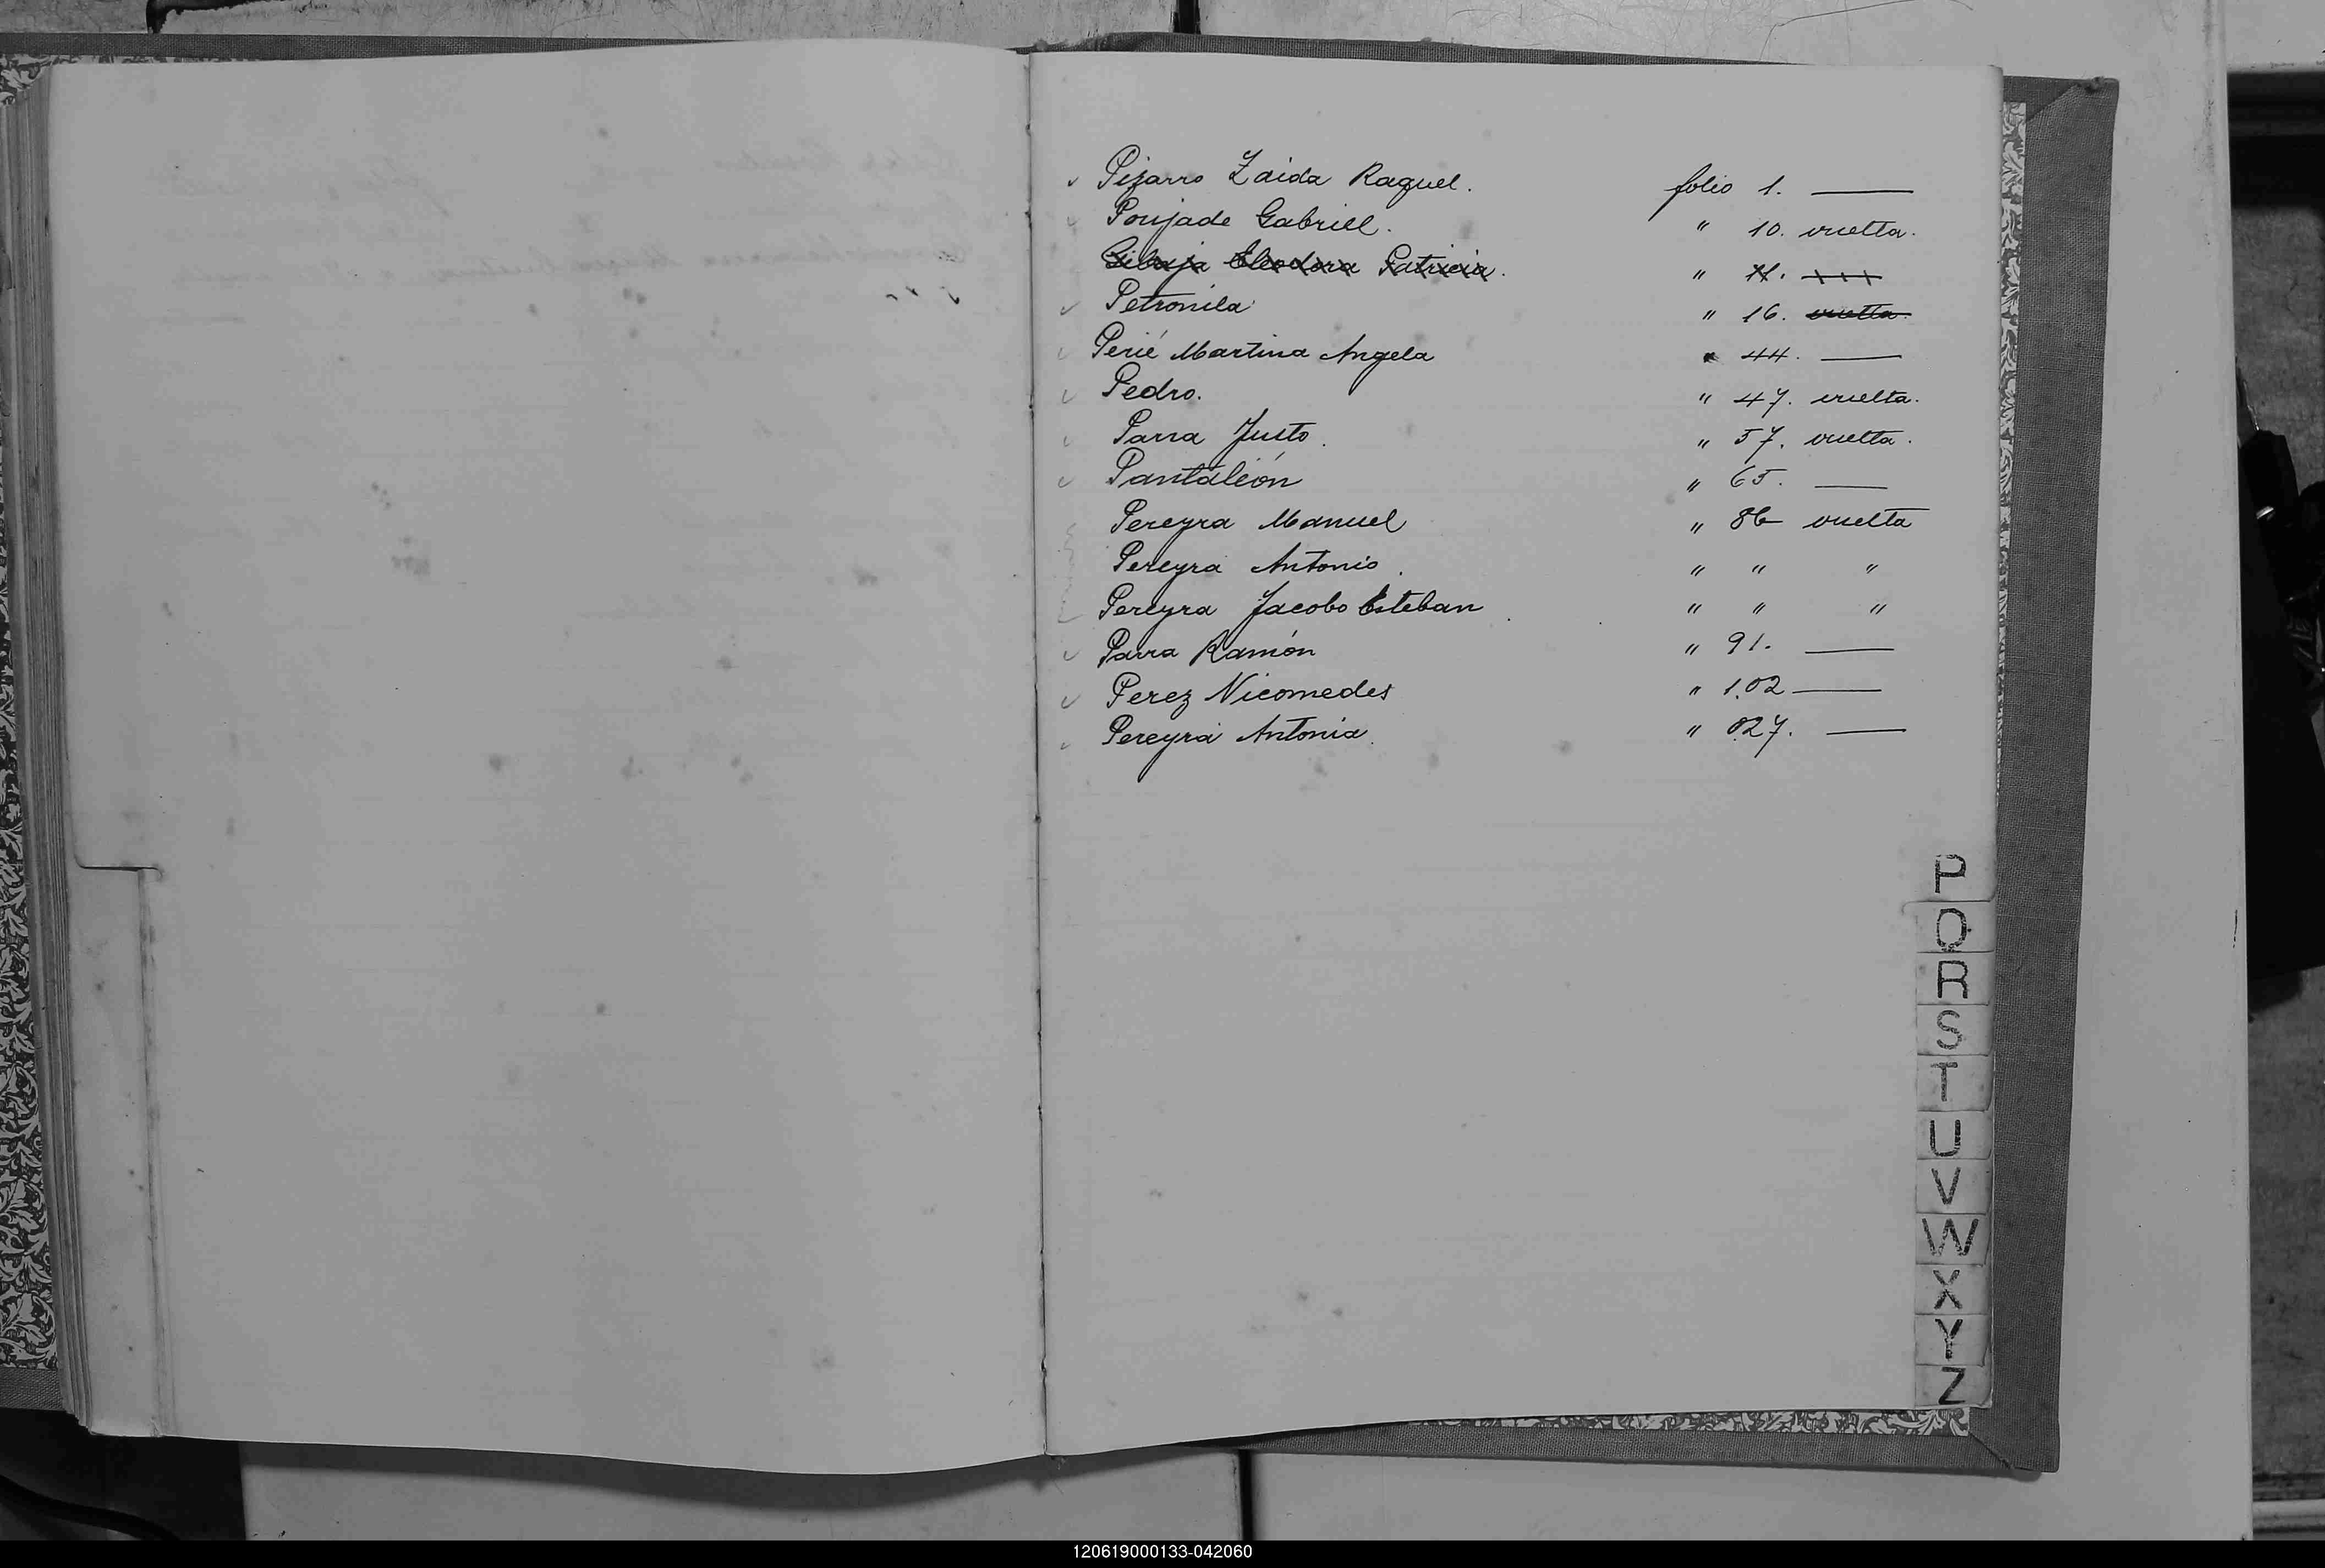 Pizarro Zaida Raquel. folio 1. ——
Poujade Gabriel. " 10. vuelta.
Gibaja Eleodora Patricia. " 11.
Petronila " 16. vuelta.
Perié Martina Angela " 44. ——
Pedro. " 47. vuelta.
Parra Justo. " 57. vuelta.
Pantaleón " 65. ——
Pereyra Manuel " 86 vuelta
Pereyra Antonio. " " "
Pereyra Jacobo Esteban. " " "
Parra Ramón " 91. ——
Perez Nicomedes " 102 ——
Pereyra Antonia. " 127. ——
P
Q
R
S
T
U
V
W
X
Y
Z
120619000133-042060